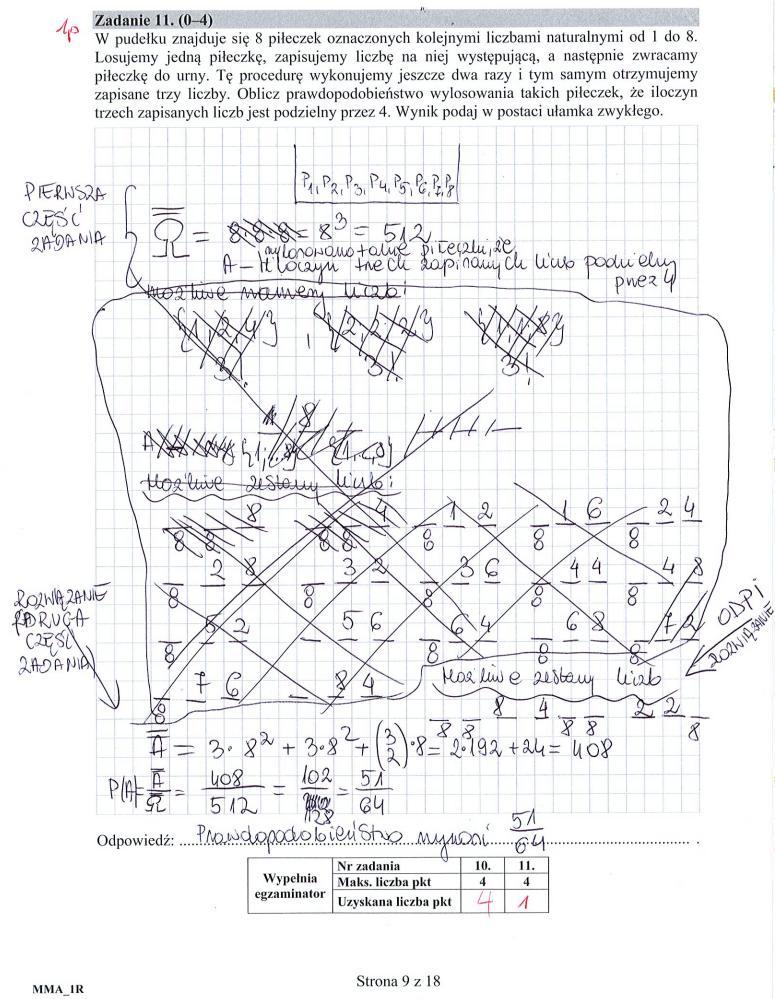 1p
Zadanie 11. (0–4)
W pudełku znajduje się 8 piłeczek oznaczonych kolejnymi liczbami naturalnymi od 1 do 8.
Losujemy jedną piłeczkę, zapisujemy liczbę na niej występującą, a następnie zwracamy
piłeczkę do urny. Tę procedurę wykonujemy jeszcze dwa razy i tym samym otrzymujemy
zapisane trzy liczby. Oblicz prawdopodobieństwo wylosowania takich piłeczek, że iloczyn
trzech zapisanych liczb jest podzielny przez 4. Wynik podaj w postaci ułamka zwykłego.
P1, P2, P3, P4, P5, P6, P7, P8
PIERWSZA
CZĘŚĆ
ZADANIA
Ω = 8·8·8 = 8³ = 512
wylosowano takie piłeczki, że
A – iloczyn trzech zapisanych liczb podzielny
przez 4
możliwe numery liczb:
{1, 2, 4} , {2, 2, 2} {1, 1, 8}
3! 3! 3!
Możliwe zestawy liczb:
8 8 8 8 8 4 8 1 2 8 1 6 8 2 4
8 2 8 8 3 2 8 3 6 8 4 4 8 4 8
8 5 2 _ 5 6 8 6 4 8 6 8 8 7 2
8 7 6 _ 8 4
ROZWIĄZANIE
DRUGA
CZĘŚĆ
ZADANIA
ODP I
ROZWIĄZANIE
Możliwe zestawy liczb
8 8 8 4 8 8 2 2 8
A = 3·8² + 3·8² + (3 2)·8 = 2·192 + 24 = 408
P(A) = A/Ω = 408/512 = 102/128 = 51/64
Odpowiedź: Prawdopodobieństwo wynosi 51/64
Wypełnia egzaminator
Nr zadania 10. 11.
Maks. liczba pkt 4 4
Uzyskana liczba pkt 4 1
MMA_1R
Strona 9 z 18